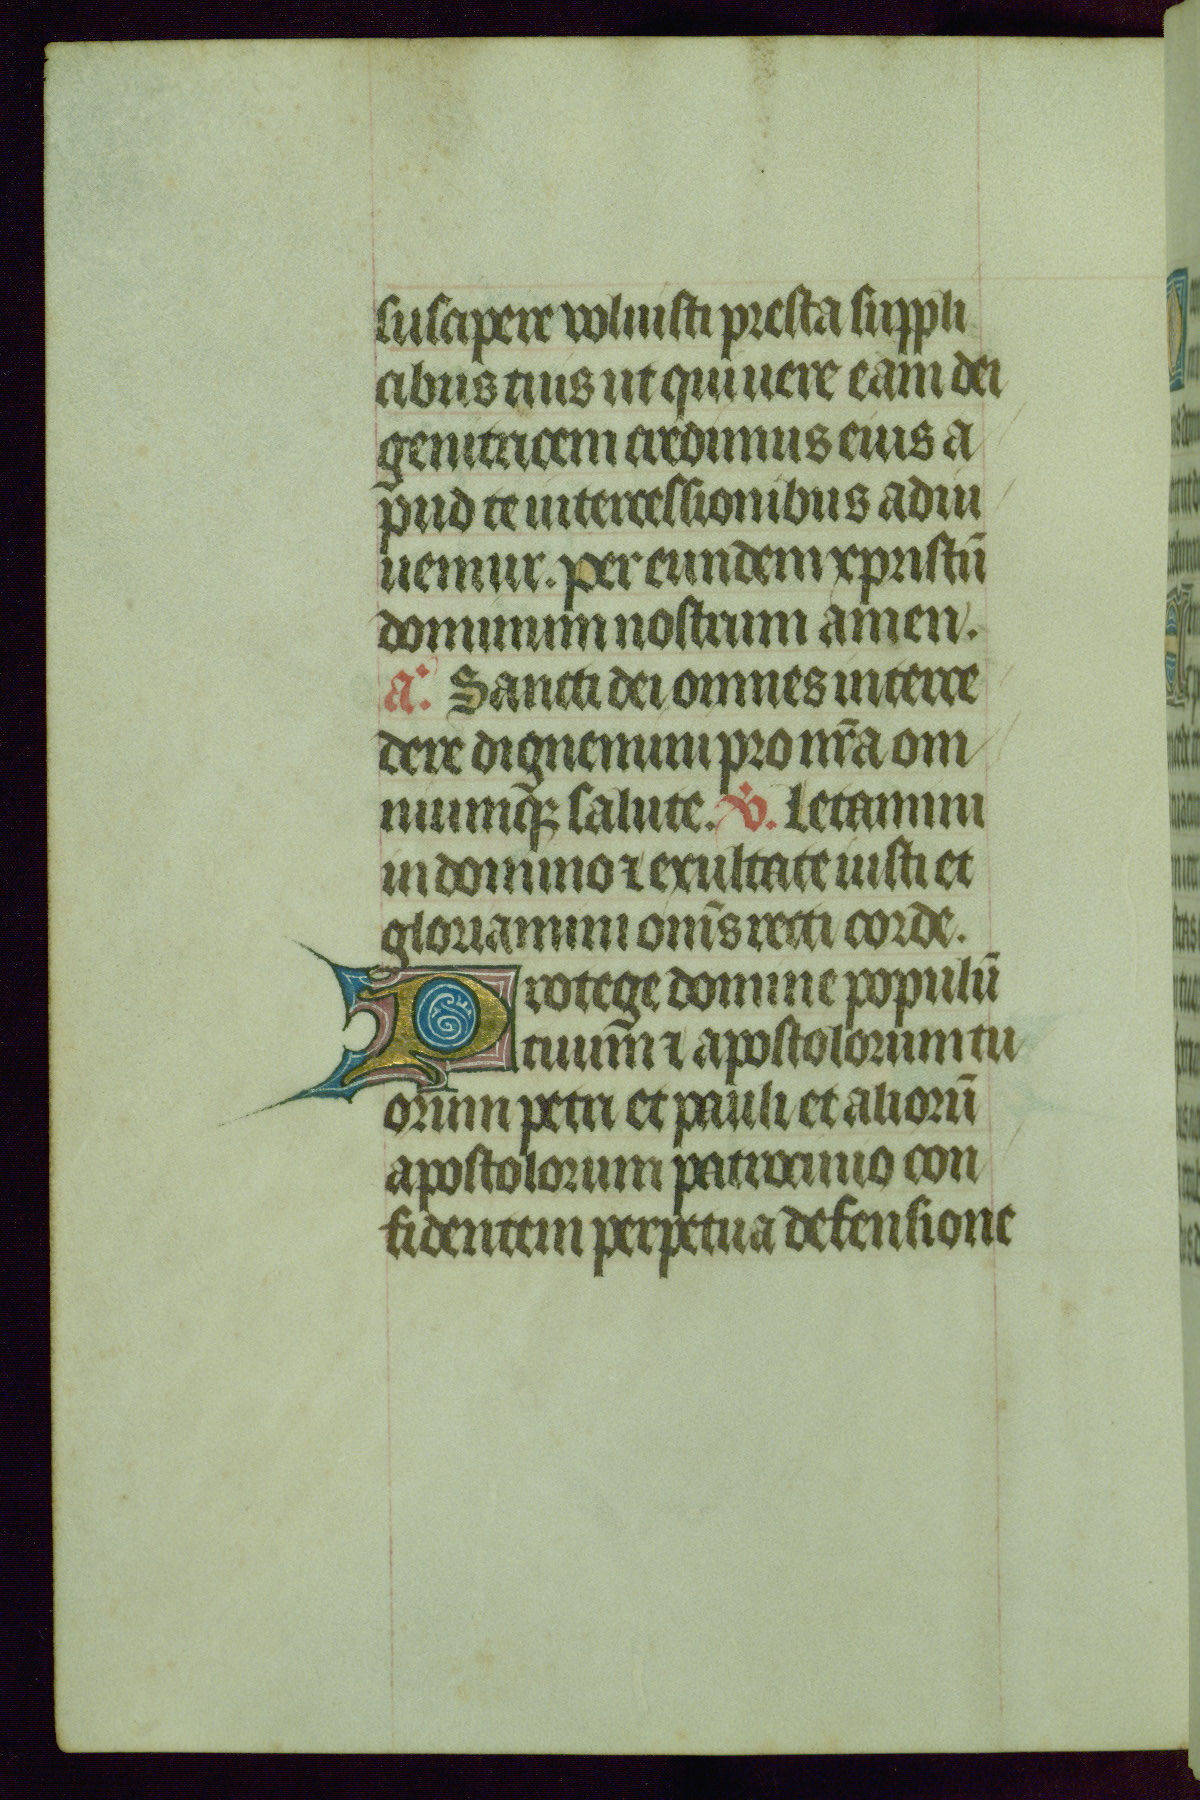 suscipere voluisti presta suppli
cibus tuis ut qui uere eam dei
genitricem credimus eius a
pud te intercessionibus adiu
uemur. per eundem xpristū
dominum nostrum amen.
a. Sancti dei omnes interce
dere dignemini pro nr̄a om
niumq̄ꝫ salute. v. Letamini
in domino ⁊ exultate iusti et
gloriamini om̄s recti corde.
Protege domine populū
tuum̄ ⁊ apostolorum tu
orum petri et pauli et aliorū
apostolorum patrocinio con
fidentem perpetua defensione